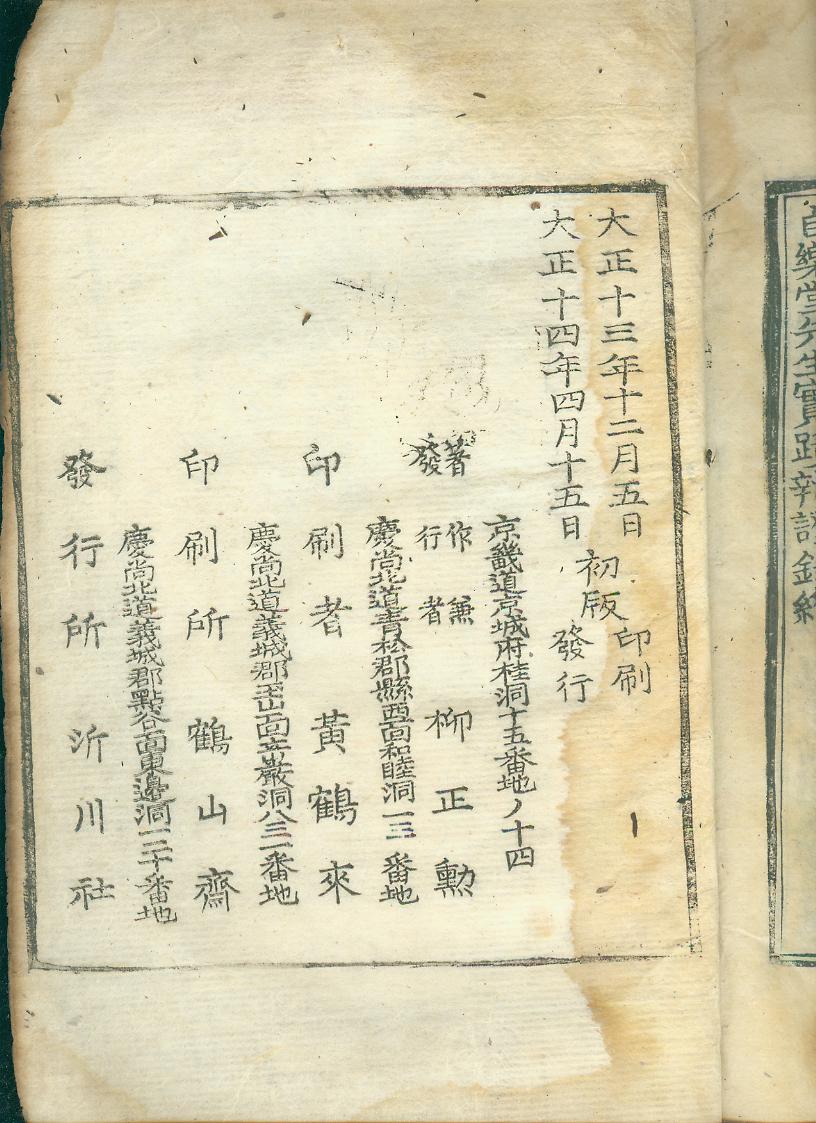 百樂堂先生實蹟辨證錄終
大正十三年十二月五日 初版 印刷
大正十四年四月十五日 發行
京畿道京城府桂洞十五番地ノ十四
著作兼
發行者 柳正勳
慶尚北道青松郡縣西面和睦洞一三 番地
印刷者 黃鶴來
慶尚北道義城郡玉山面立巖洞八三一番地
印刷所 鶴山齋
慶尚北道義城郡點谷面東邊洞一二十番地
發行所 沂川社